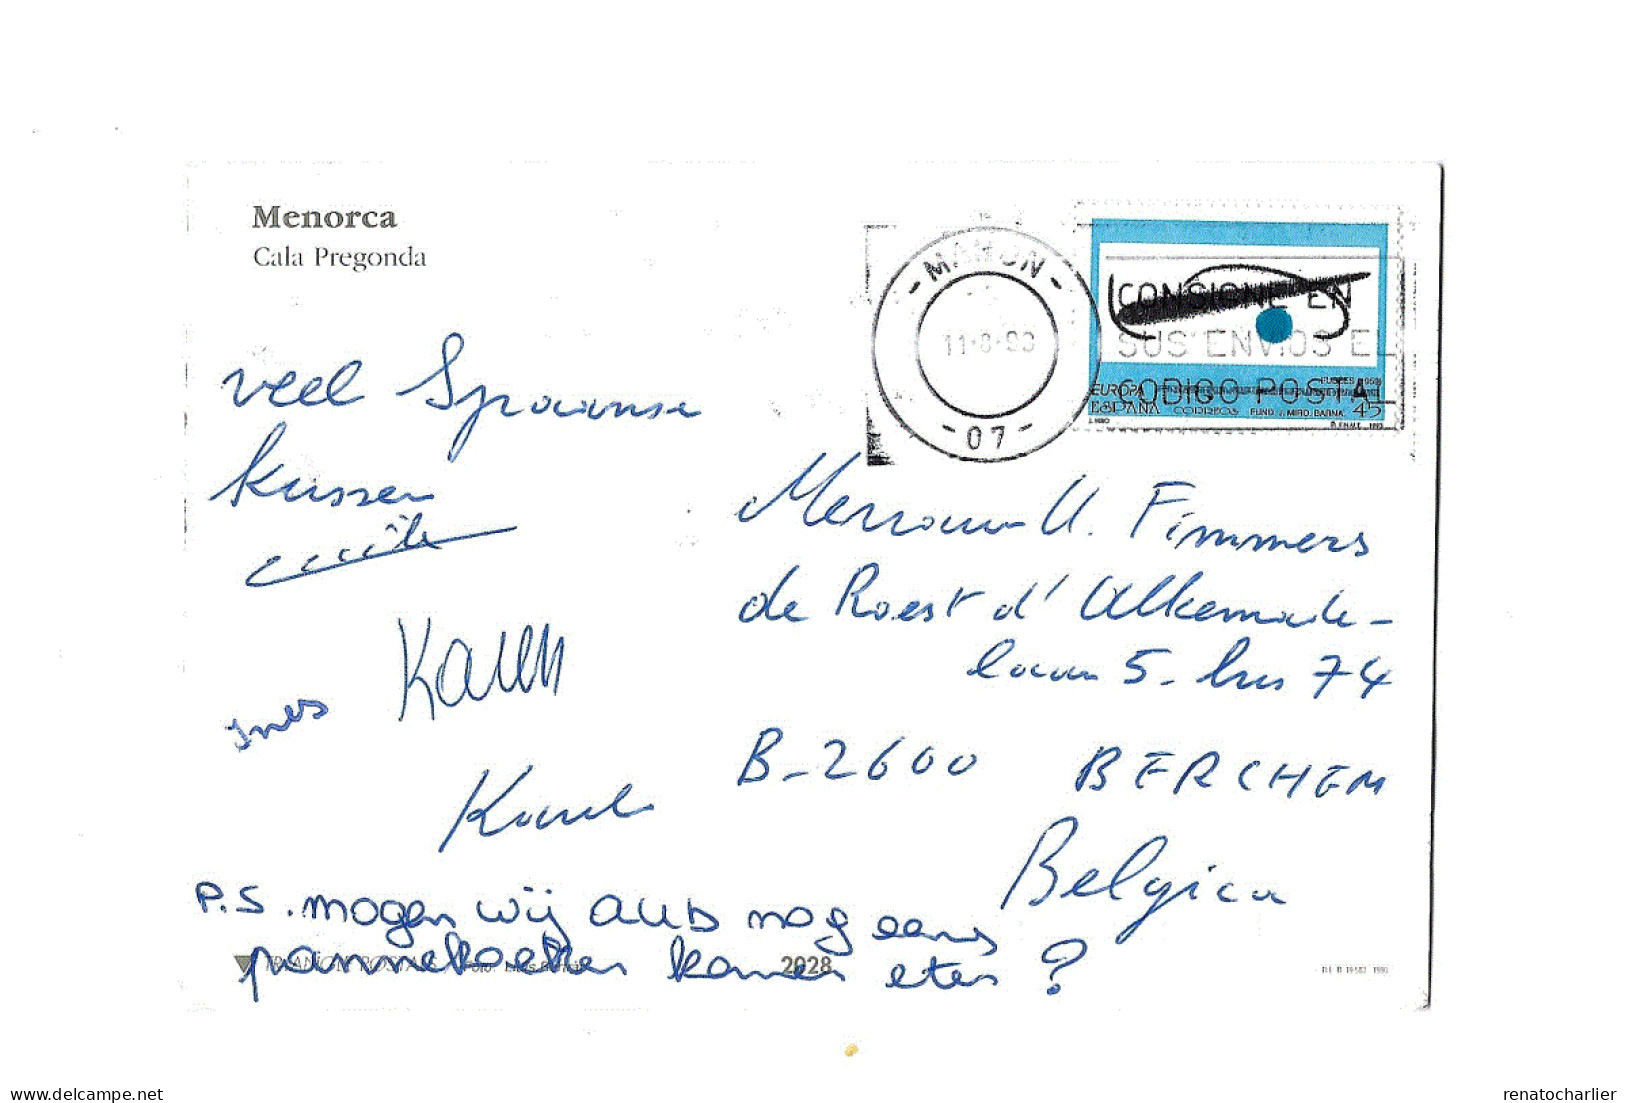 Menorca
Cala Pregonda
- MAHON -
11-8-93
- 07 -
CONSIGNE EN
SUS ENVIOS EL
CODIGO POSTAL
EUROPA
ESPAÑA CORREOS FUND. J. MIRO. BARNA. 45
veel Spaanse
kussen
Cécile
Karen
Ines
Karel
Mevrouw U. Fimmers
de Roest d'Alkemade-
laan 5 - bus 74
B-2600 BERCHEM
Belgica
P.S. mogen wij aub nog eens
pannekoeken komen eten?
TRIANGLE POSTALS
2028
delcampe.net
renatocharlier